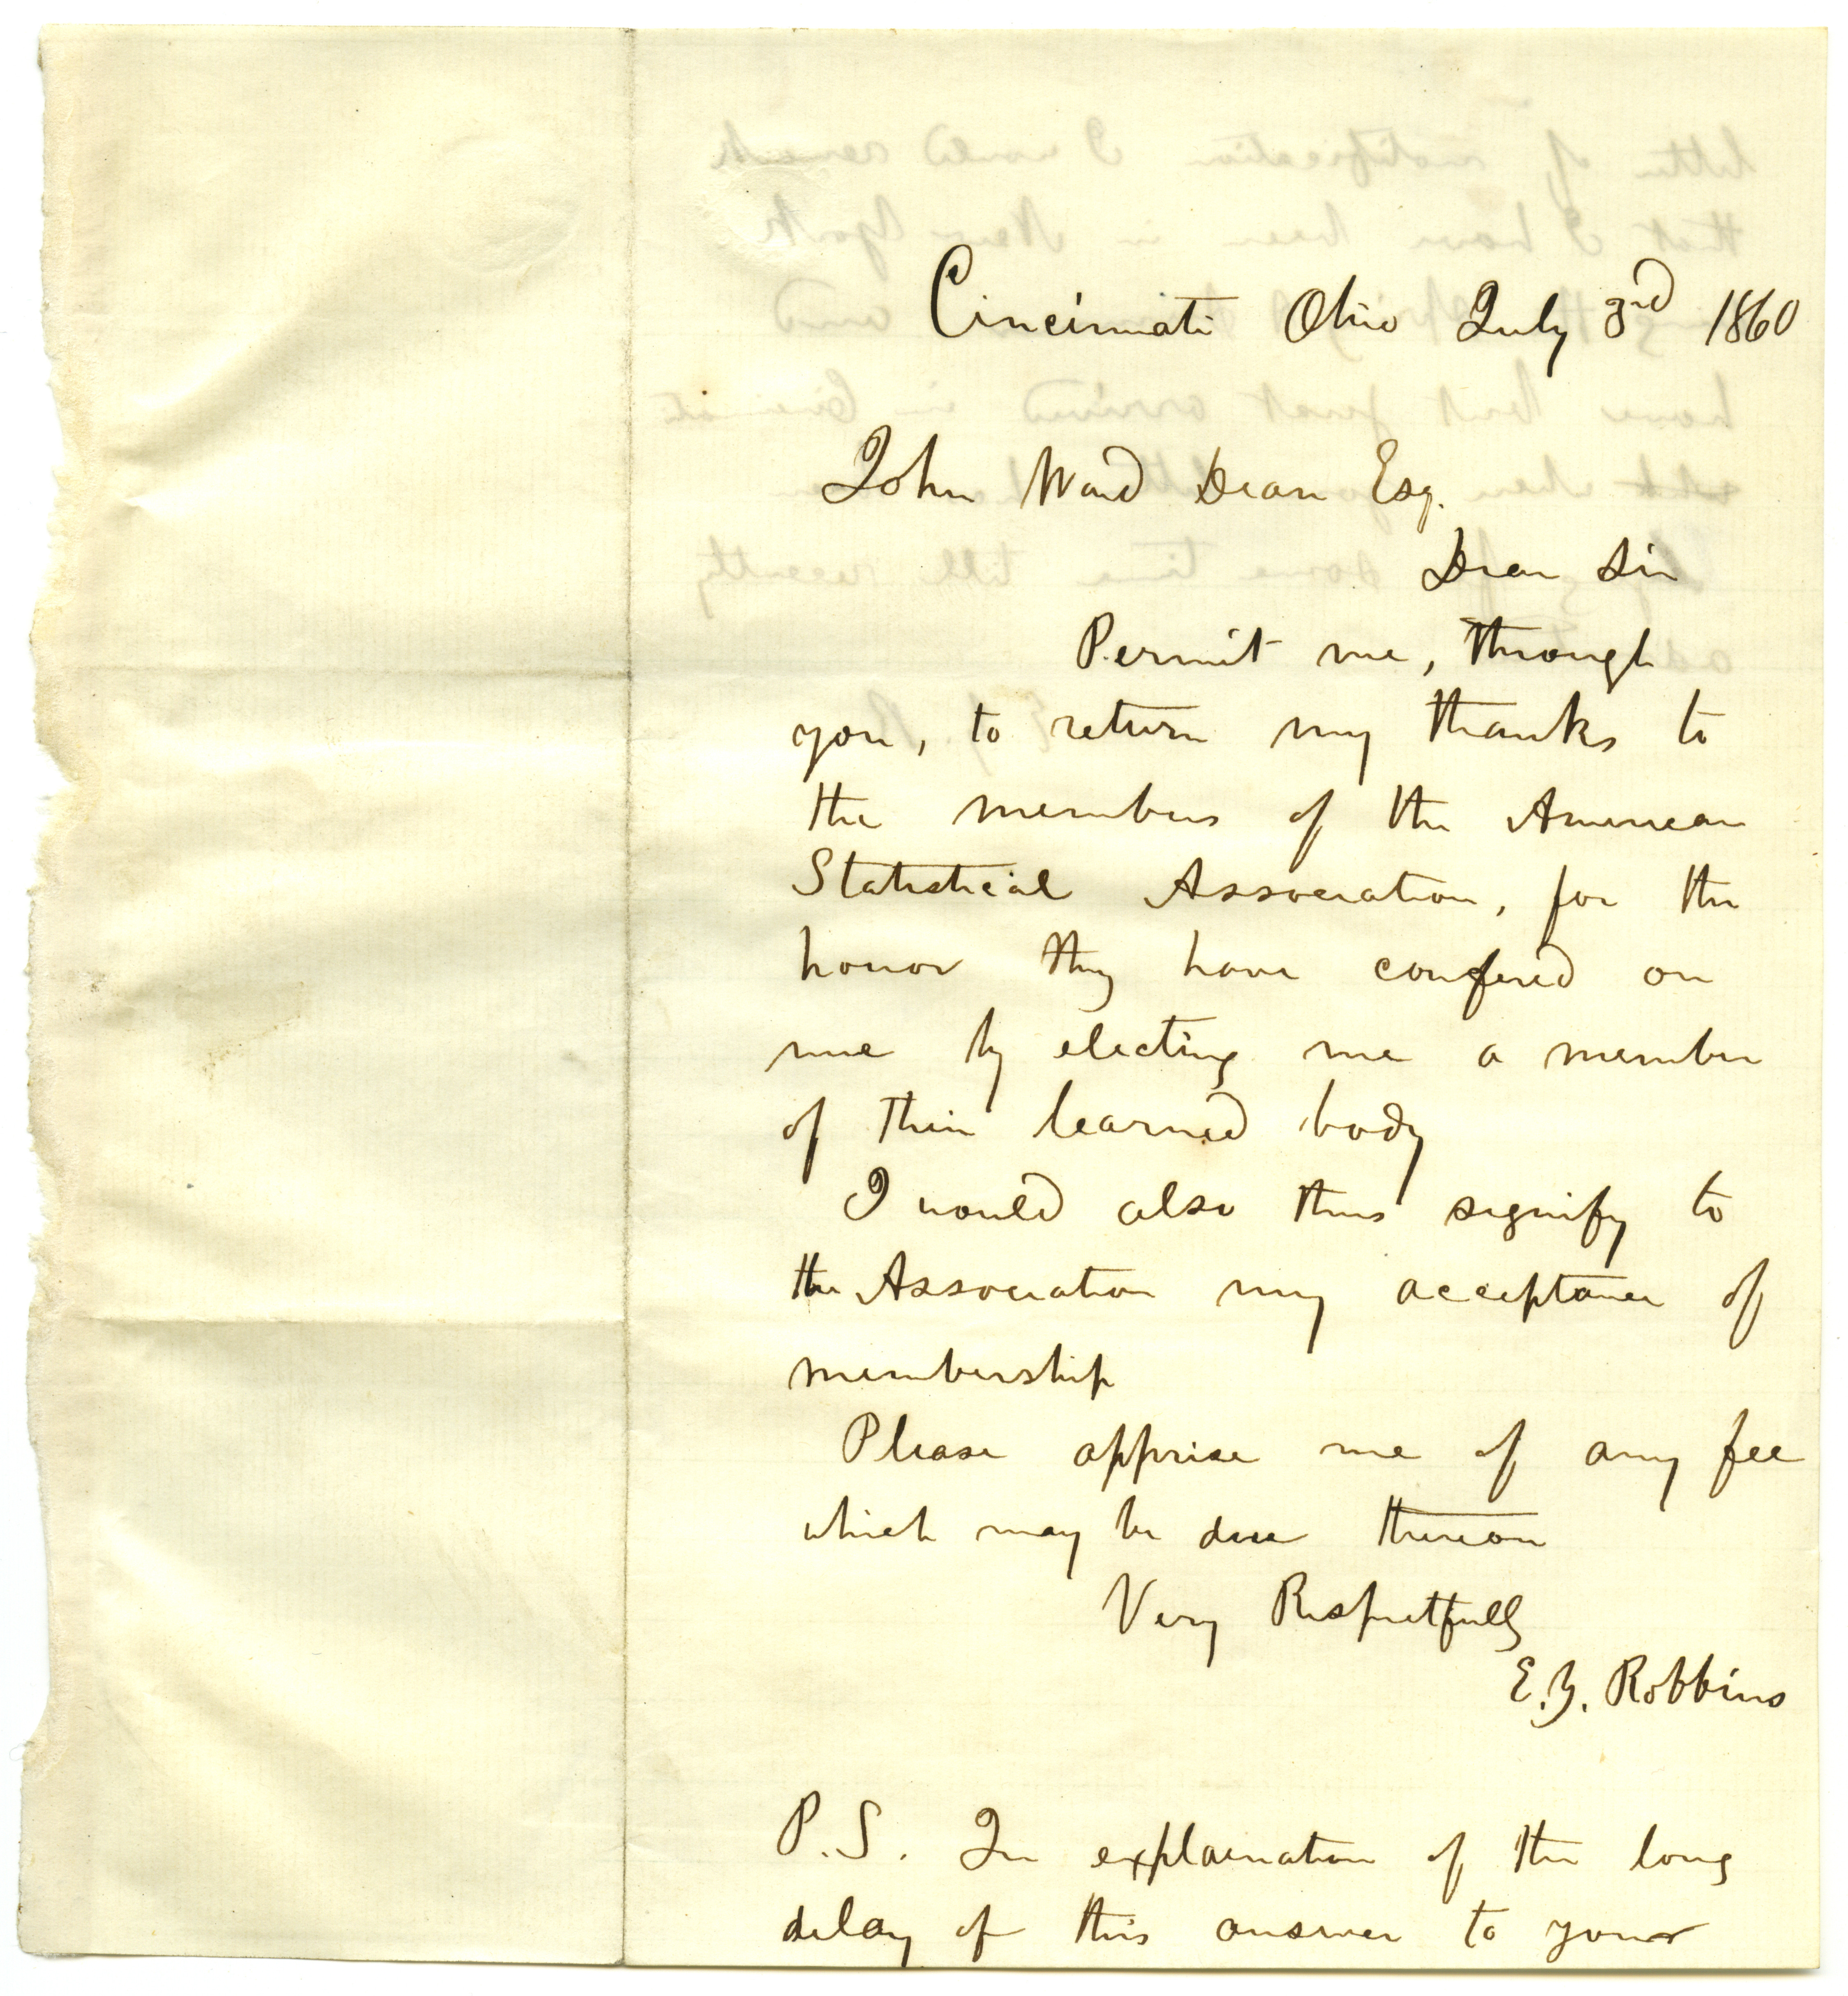 Cincinnati Ohio July 3rd 1860
John Ward Dean Esq.
Dear Sir
Permit me, through
you, to return my thanks to
the members of the American
Statistical Association, for the
honor they have confered on
me by electing me a member
of their learned body
I would also thus signify to
the Association my acceptance of
membership
Please apprise me of any fee
which may be due thereon
Very Respectfully
E. Y. Robbins
P.S. In explaination of the long
delay of this answer to your